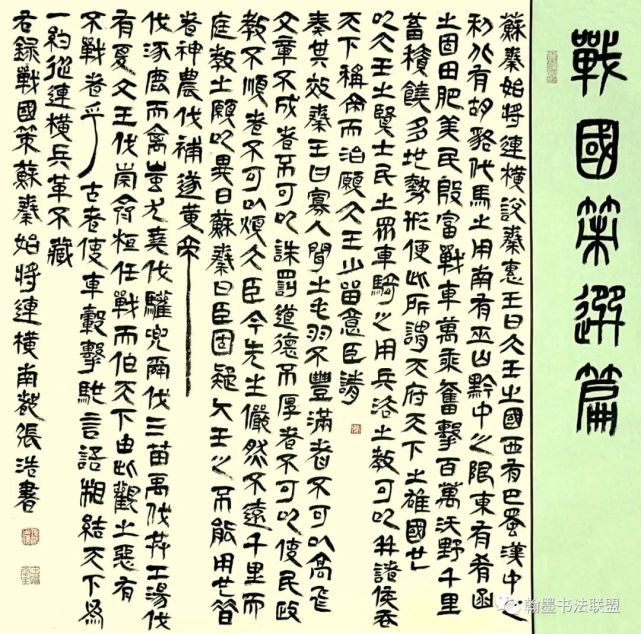 戰國策選篇
蘇秦始將連橫說秦惠王曰大王之國西有巴蜀漢中之
利北有胡貉代馬之用南有巫山黔中之限東有肴函
之固田肥美民殷富戰車萬乘奮擊百萬沃野千里
蓄積饒多地勢形便此所謂天府天下之雄國也
以大王之賢士民之眾車騎之用兵法之教可以并諸侯吞
天下稱帝而治願大王少留意臣請
奏其效秦王曰寡人聞之毛羽不豐滿者不可以高飛
文章不成者不可以誅罰道德不厚者不可以使民政
教不順者不可以煩大臣今先生儼然不遠千里而
庭教之願以異日蘇秦曰臣固疑大王之不能用也昔
者神農伐補遂黃帝
伐涿鹿而禽蚩尤堯伐驩兜舜伐三苗禹伐共工湯伐
有夏文王伐崇齊桓任戰而伯天下由此觀之惡有
不戰者乎古者使車轂擊馳言語相結天下為
一約從連橫兵革不藏
右錄戰國策蘇秦始將連橫南張浩書
翰墨书法联盟